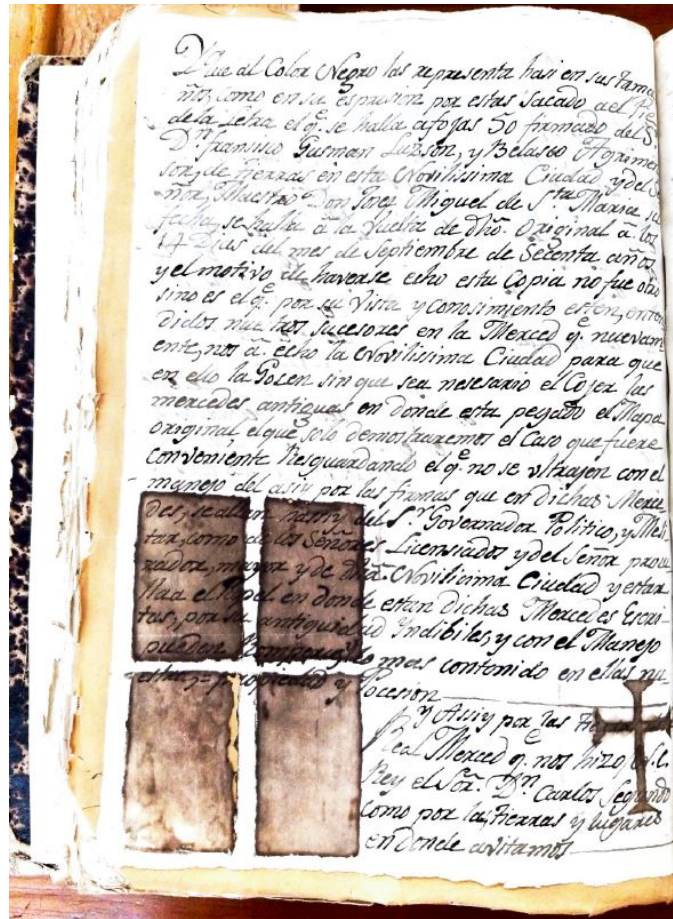 Que al Color Negro las representa hasi en sus Tama
ños, como en su espresion por estar sacado del Pie
de la Letra el q.e se halla afojas 50 firmado del S.
D.n fransisco Gusman Luzson, y Belasco Agrimen
sor, de tierras en esta Novilissima Ciudad y del Se
ñor, Maestro Don Jose Miguel de S.ta Maria su
fecha, se halla â la vuelta de dhô. Original â los
14 Dias del mes de Septiembre de Secenta años
y el motivo de haverse echo esta Copia no fue otro
sino es el q.e por su Vista y Conosimiento esten, enten
didos nuestros sucesores en la Merced q.e nuevam
ente, nos â. echo la Novilissima Ciudad para que
en ello la Gosen sin que sea nesesario el Cojer las
mercedes antiguas en donde esta pegado el Mapa
original, el que solo demostraremos el Caso que fuere
conveniente Resguardando el q.e no se ultrajen con el
manejo del asiy por las firmas que en dichas Merce
des, se allan hasiy del S.r Governador Politico, y Meli
tar, como de los Señores Licensiados y del Señor procu
rador, mayor y de dhâ. Novilissima Ciudad y estar
ya el Papel en donde estan dichas Mercedes Escri
tas, por su antiguidad Yndibiles, y con el Manejo
puedese Romper y lo mas contenido en ellas nu
estra, propiedad y Pocesion
Y Assiy por las
Real Merced q.e nos hizo el
Rey el Sor. D.n Carlos Segundo
como por las tierras y lugares
en donde avitamos